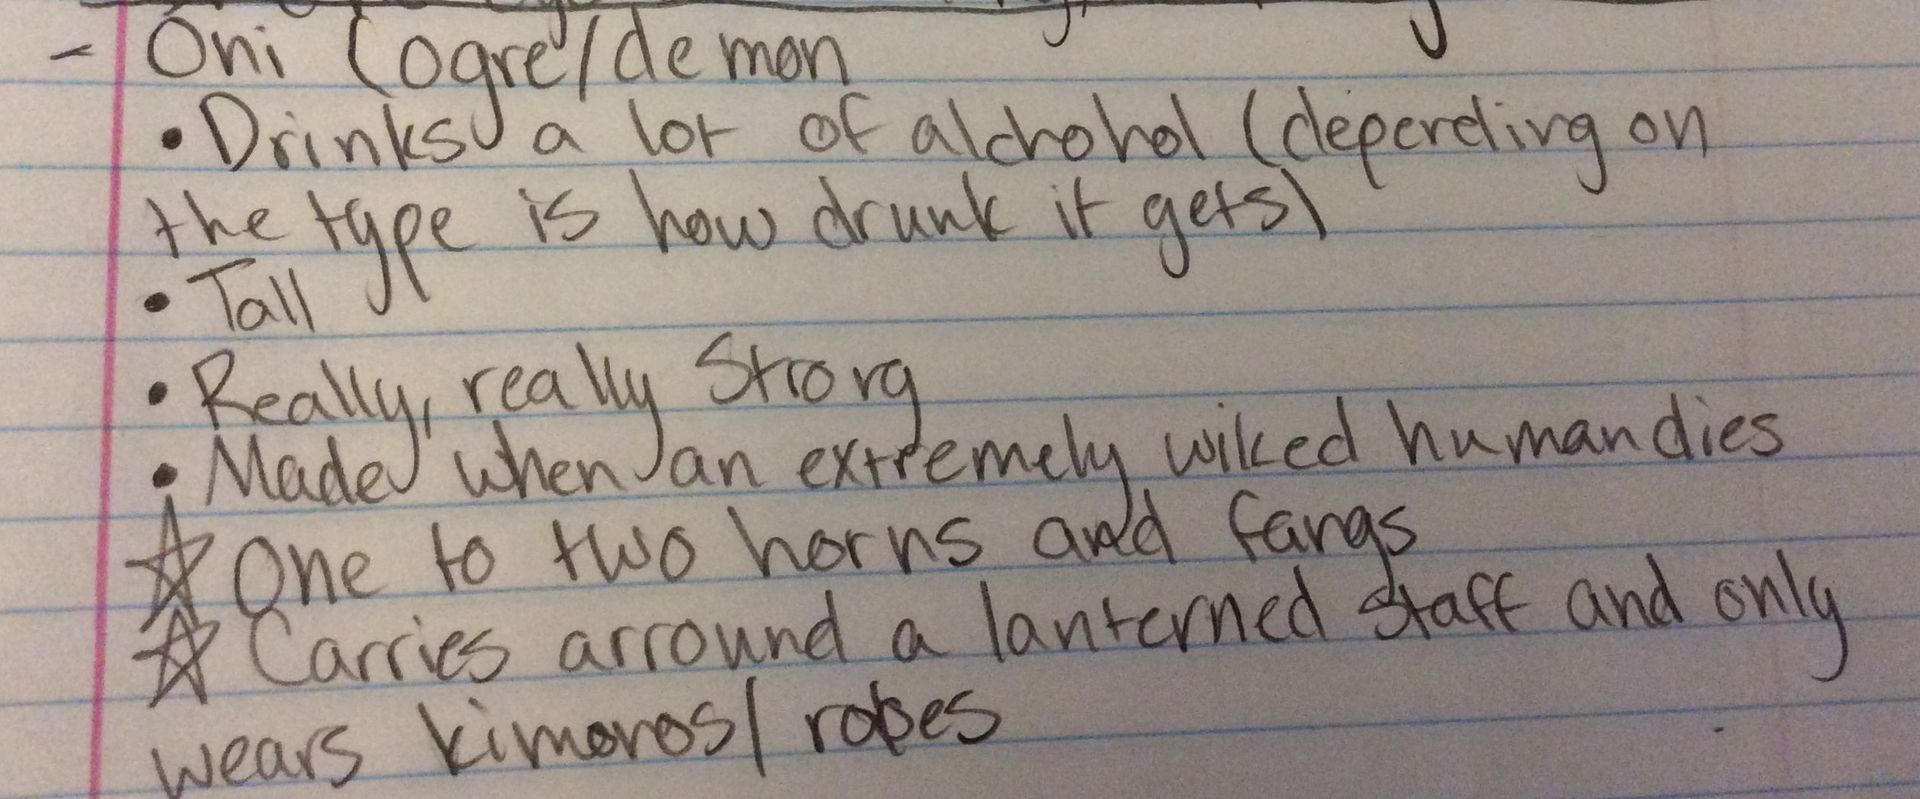 - Oni (ogre/demon
• Drinks a lot of alchohol (depending on
the type is how drunk it gets)
• Tall
• Really, really Strong
• Made when an extremely wilced human dies
☆ One to two horns and fangs
☆ Carries arround a lanterned staff and only
wears kimonos/ robes